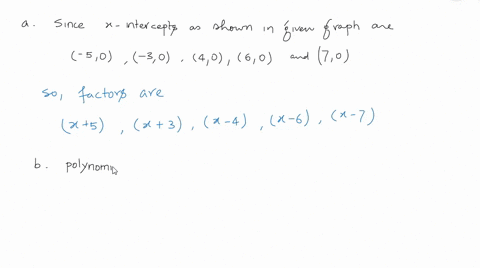 a. Since x-intercepts as shown in given graph are
(-5,0) , (-3,0) , (4,0) , (6,0) and (7,0)
so, factors are
(x+5) , (x+3) , (x-4) , (x-6) , (x-7)
b. polynomi